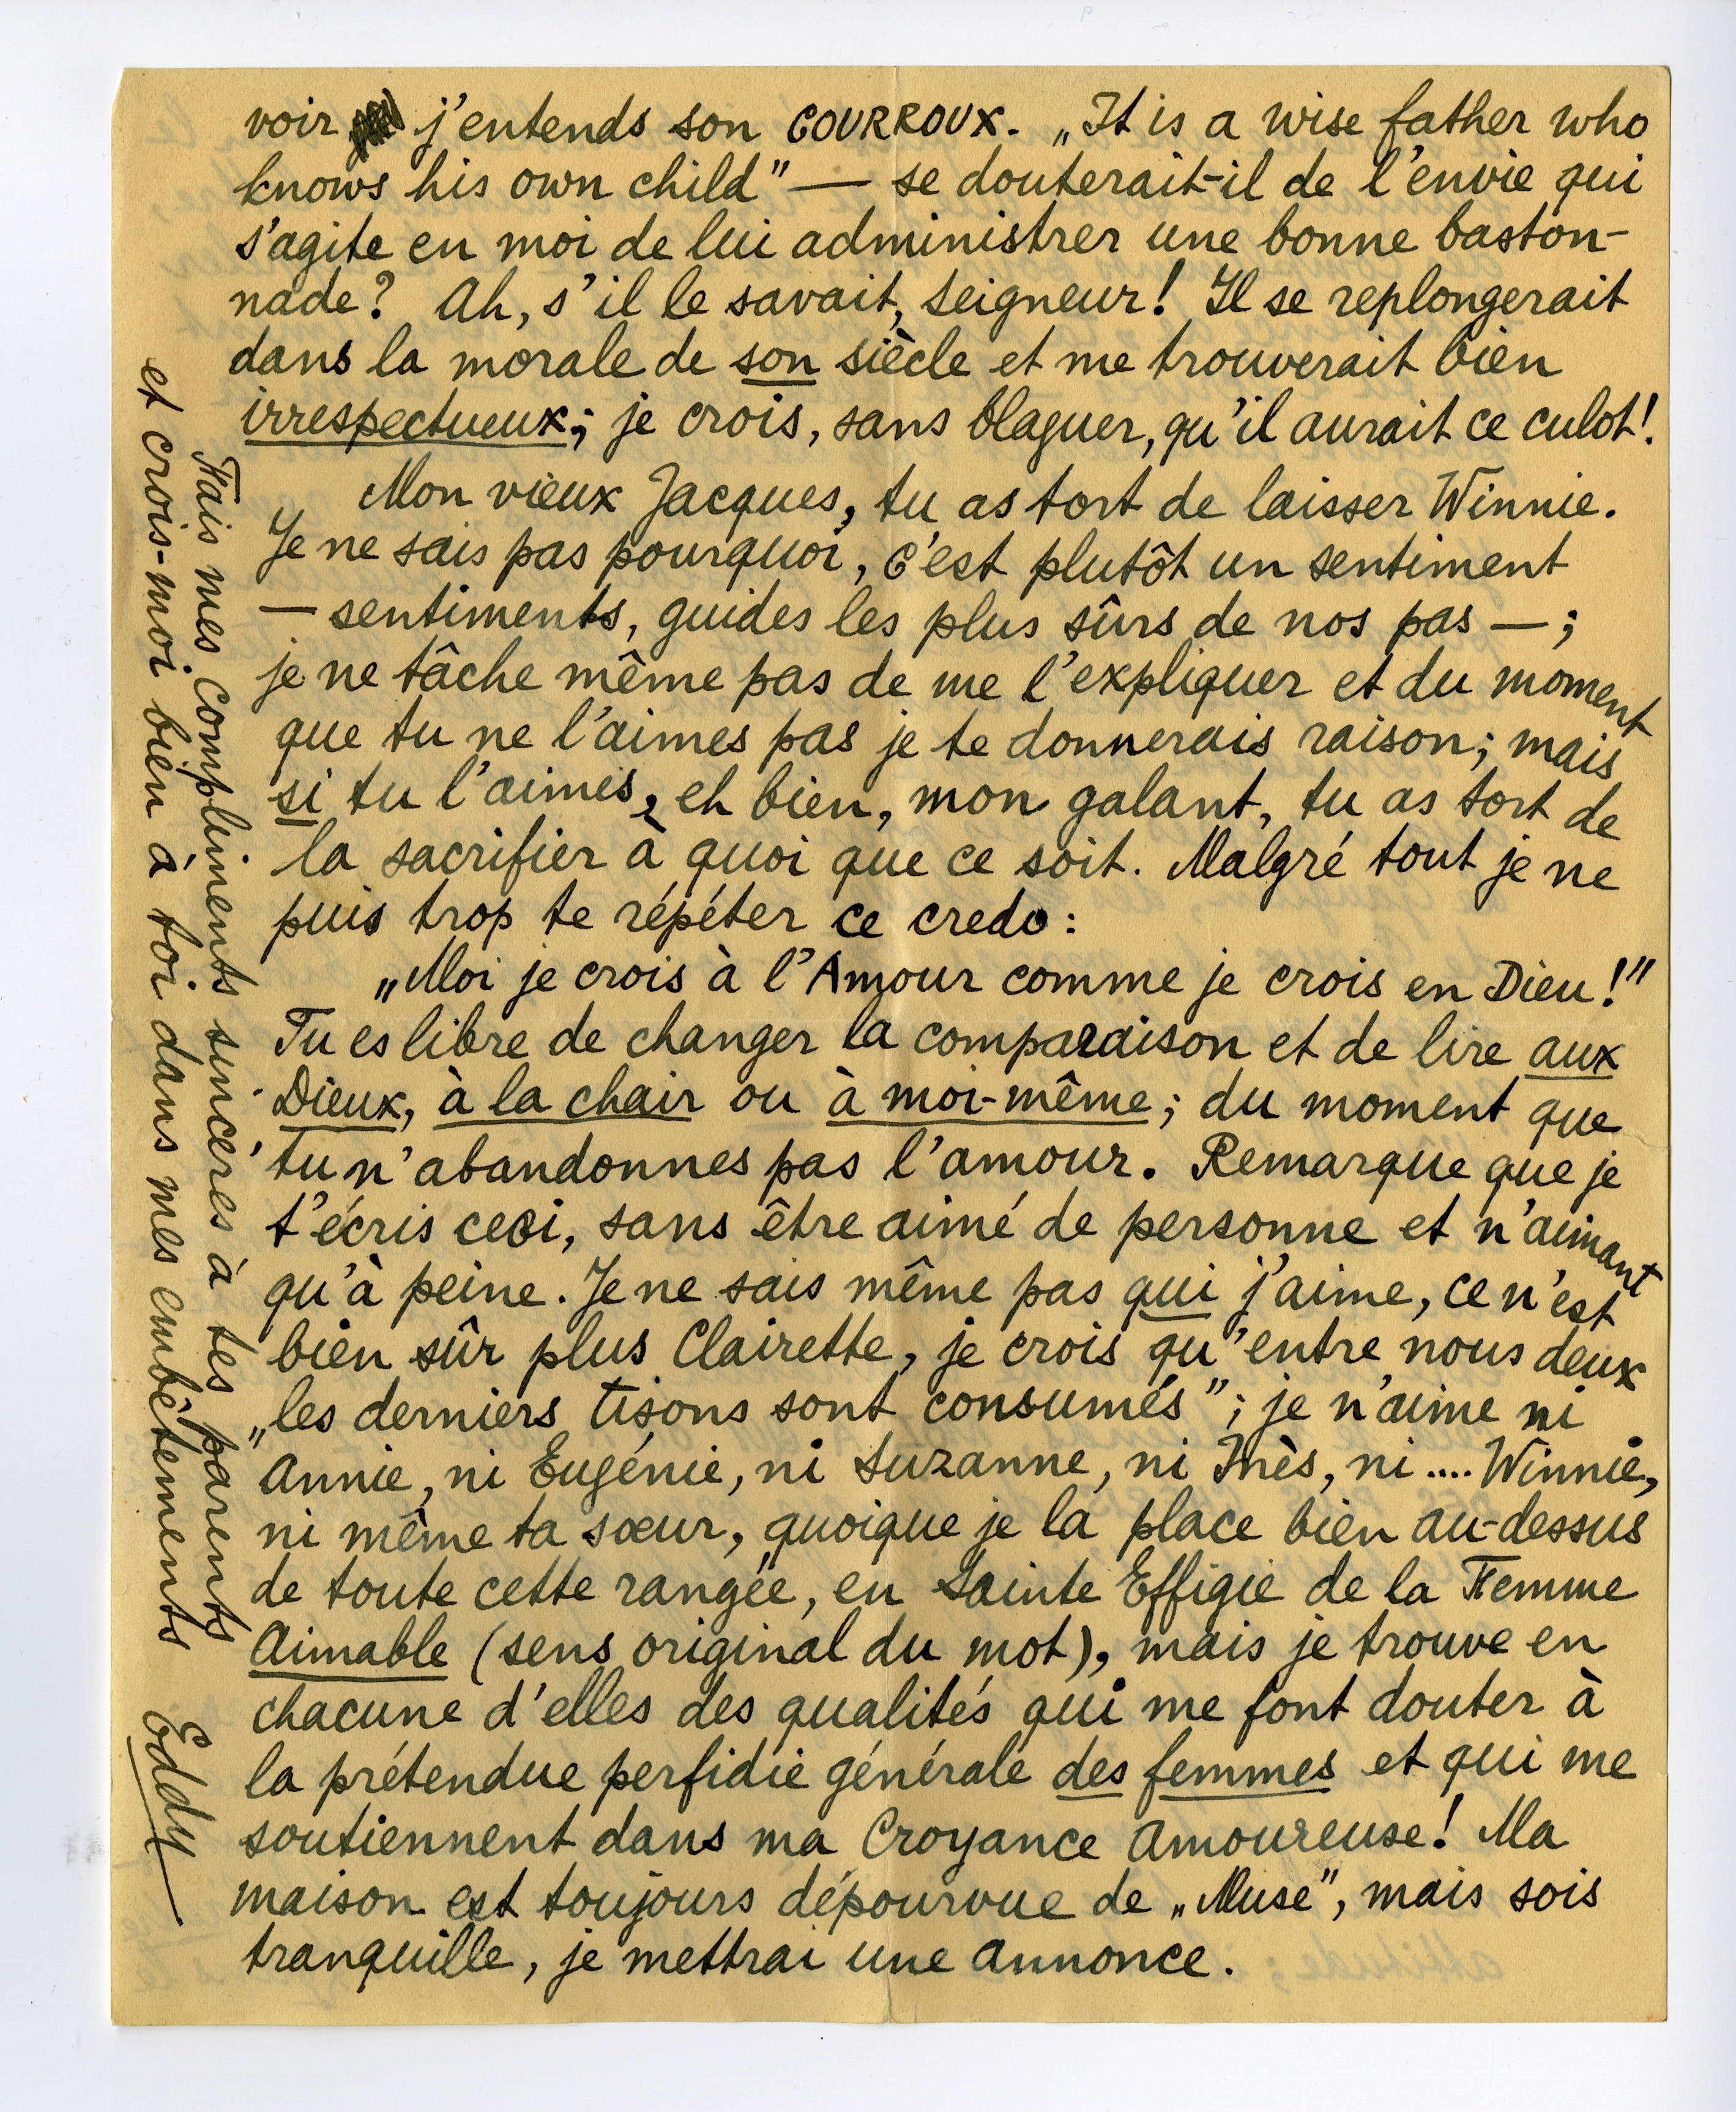 voir j'entends son COURROUX. „It is a wise father who
knows his own child" — se douterait-il de l'envie qui
s'agite en moi de lui administrer une bonne baston-
nade? Ah, s'il le savait, Seigneur! Il se replongerait
dans la morale de son siècle et me trouverait bien
irrespectueux; je crois, sans blaguer, qu'il aurait ce culot!.
Mon vieux Jacques, tu as tort de laisser Winnie.
Je ne sais pas pourquoi, c'est plutôt un sentiment
— sentiments, guides les plus sûrs de nos pas —;
je ne tâche même pas de me l'expliquer et du moment
que tu ne l'aimes pas je te donnerais raison; mais
si tu l'aimes, eh bien, mon galant, tu as tort de
la sacrifier à quoi que ce soit. Malgré tout je ne
puis trop te répéter ce credo:
„Moi je crois à l'Amour comme je crois en Dieu!"
Tu es libre de changer la comparaison et de lire aux
Dieux, à la chair ou à moi-même; du moment que
tu n'abandonnes pas l'amour. Remarque que je
t'écris ceci, sans être aimé de personne et n'aimant
qu'à peine. Je ne sais même pas qui j'aime, ce n'est
bien sûr plus Clairette, je crois qu'entre nous deux
„les derniers tisons sont consumés"; je n'aime ni
Annie, ni Eugénie, ni Suzanne, ni Inès, ni .... Winnie,
ni même ta sœur, quoique je la place bien au-dessus
de toute cette rangée, en Sainte Effigie de la Femme
Aimable (sens original du mot), mais je trouve en
chacune d'elles des qualités qui me font douter à
la prétendue perfidie générale des femmes et qui me
soutiennent dans ma Croyance Amoureuse! Ma
maison est toujours dépourvue de „Muse", mais sois
tranquille, je mettrai une annonce.
Fais mes compliments sincères à tes parents
et crois-moi bien à toi dans mes embêtements
Eddy